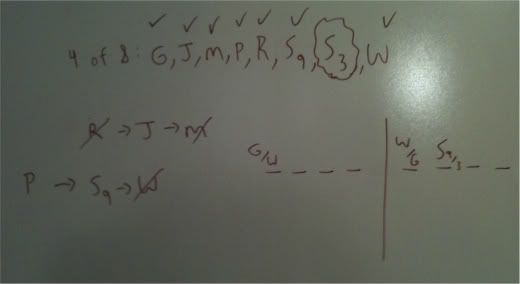 4 of 8: G, J, M, P, R, Sq, S3, W
R → J → M
P → Sq → W
G/W
W/G Sq/3